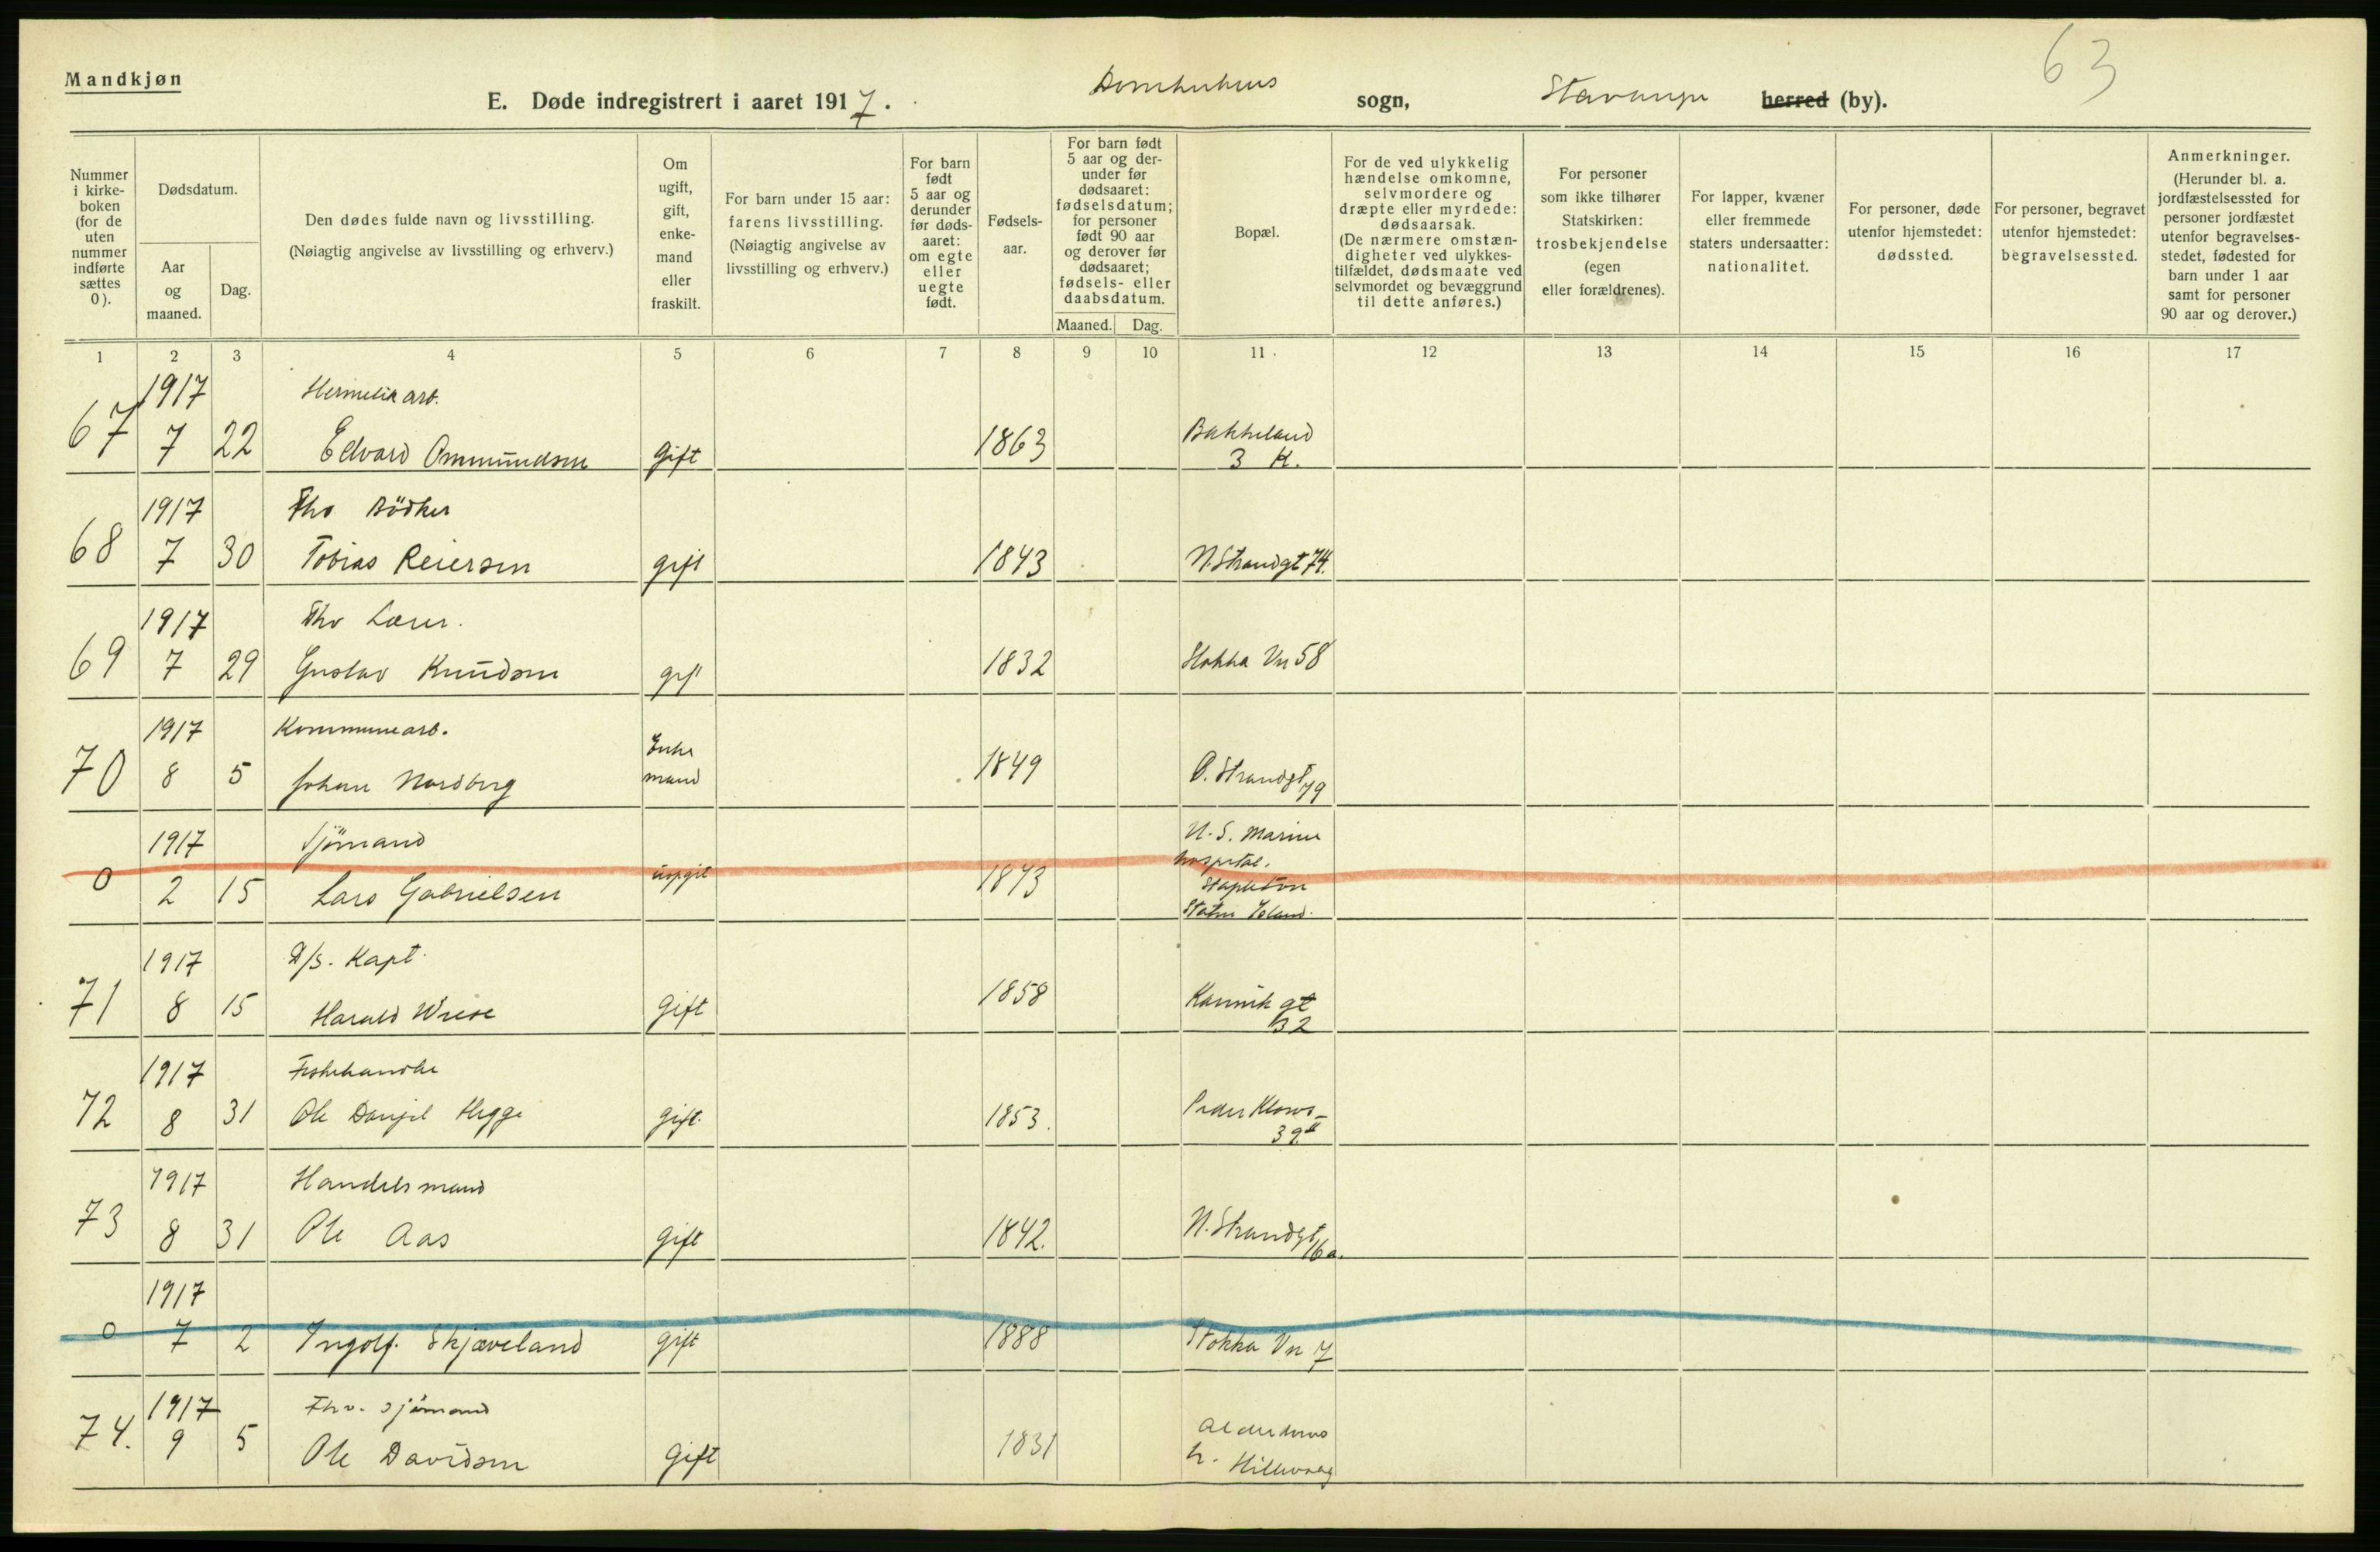 63
Mandkjøn
E. Døde indregistrert i aaret 1917. Domkirkens sogn, Stavanger herred (by).
Nummer i kirke-boken (for de uten nummer indførte sættes 0).
Dødsdatum.
Aar og maaned.
Dag.
Den dødes fulde navn og livsstilling.
(Nøiagtig angivelse av livsstilling og erhverv.)
Om ugift, gift, enke-mand eller fraskilt.
For barn under 15 aar: farens livsstilling.
(Nøiagtig angivelse av livsstilling og erhverv.)
For barn født 5 aar og derunder før døds-aaret: om egte eller uegte født.
Fødsels-aar.
For barn født 5 aar og der-under før dødsaaret: fødselsdatum; for personer født 90 aar og derover før dødsaaret; fødsels- eller daabsdatum.
Maaned. Dag.
Bopæl.
For de ved ulykkelig hændelse omkomne, selvmordere og dræpte eller myrdede: dødsaarsak.
(De nærmere omstæn-digheter ved ulykkes-tilfældet, dødsmaate ved selvmordet og bevæggrund til dette anføres.)
For personer som ikke tilhører Statskirken: trosbekjendelse (egen eller forældrenes).
For lapper, kvæner eller fremmede staters undersaatter: nationalitet.
For personer, døde utenfor hjemstedet: dødssted.
For personer, begravet utenfor hjemstedet: begravelsessted.
Anmerkninger.
(Herunder bl. a. jordfæstelsessted for personer jordfæstet utenfor begravelses-stedet, fødested for barn under 1 aar samt for personer 90 aar og derover.)
1 2 3 4 5 6 7 8 9 10 11 12 13 14 15 16 17
1917 Hermetikarb.
67 7 22 Edvard Ommundsen gift 1863 Bakkeland
3 K.
1917 Fhv Bödker
68 7 30 Tobias Reiersen gift 1843 N. Strandgt 74.
1917 Fhv Lærer.
69 7 29 Gustav Knudsen gift 1832 Stokka Vn 58
1917 Kommunearb.
70 8 5 Johan Nordberg Enke
mand 1849 Ø. Strandgt 79
1917 Sjömand U.S. Marine
hospital.
0 2 15 Lars Gabrielsen 1873 Stapleton
Staten Island.
1917 D/S. Kapt.
71 8 15 Harald Wiese gift 1858 Kannik gt
32
1917 Fiskehandler
72 8 31 Ole Danjel Hegge gift. 1853. Peder Klows-
39 II
1917 Handelsmand
73 8 31 Ole Aas gift 1842. N. Strandgt
16 a.
1917
0 7 2 Ingolf. Skjæveland gift 1888 Stokka Vn 7
1917 Fhv. Sjömand
74. 9 5 Ole Davidsen gift 1831 Alderdoms
h. Hillevaag